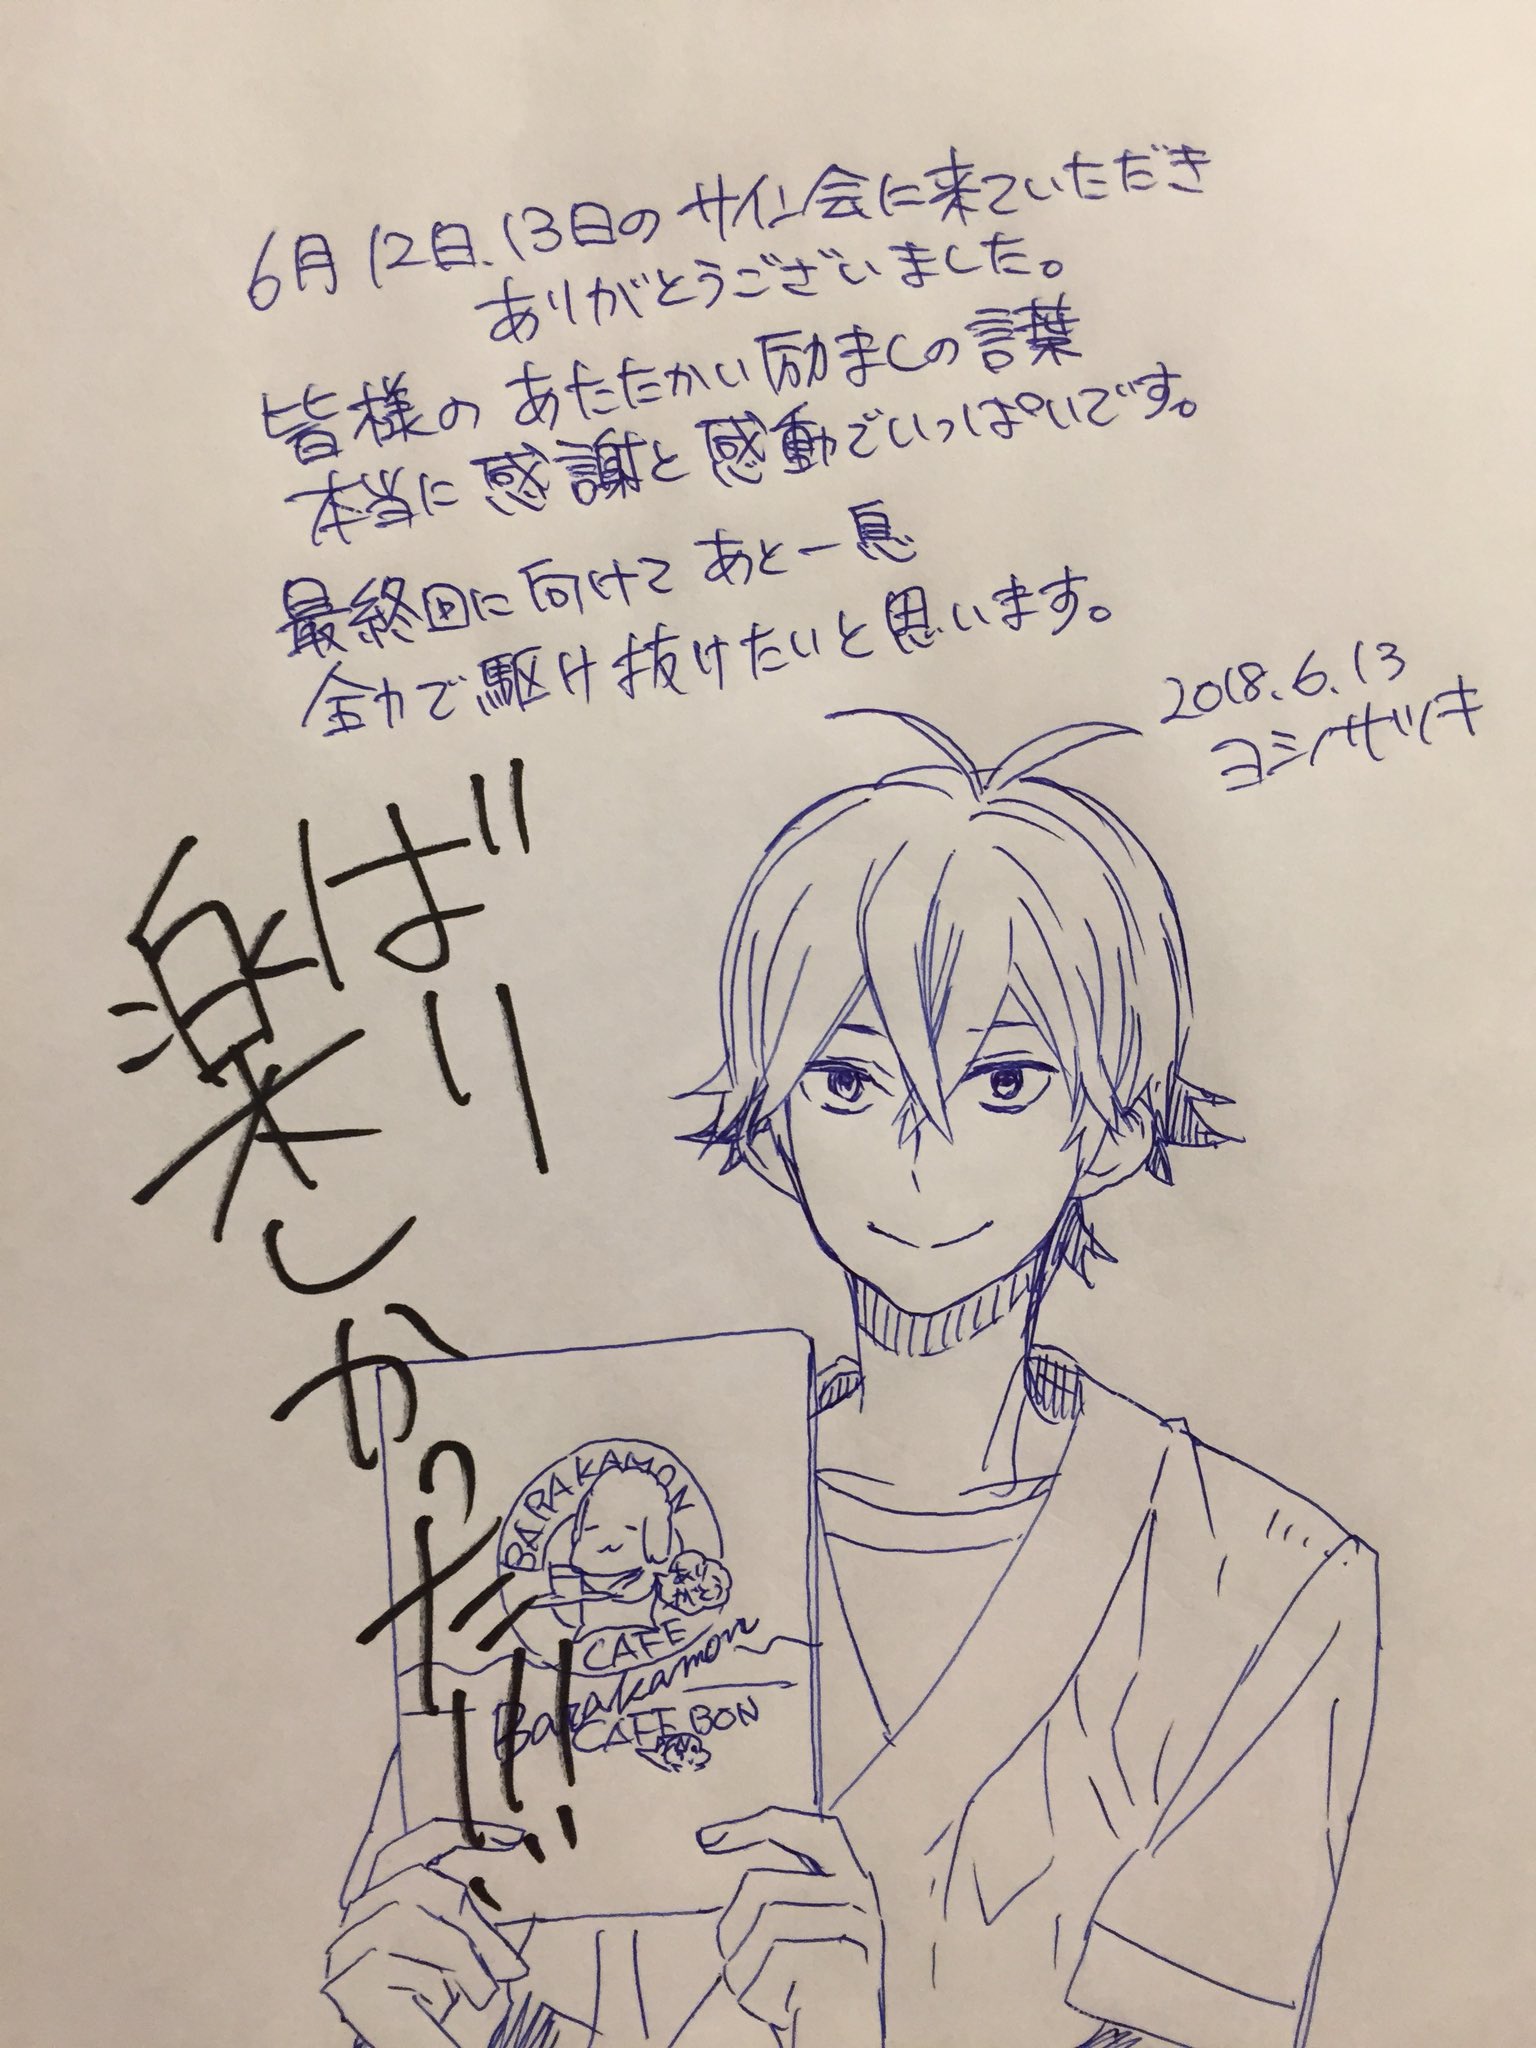 6月12日、13日のサイン会に来ていただき
ありがとうございました。
皆様のあたたかい励ましの言葉
本当に感謝と感動でいっぱいです。
最終回に向けてあと一息
全力で駆け抜けたいと思います。
2018.6.13
ヨシノサツキ
ばり
楽しかった!!!
BARAKAMON
ありがとう
CAFE
Barakamon
CAFE BON